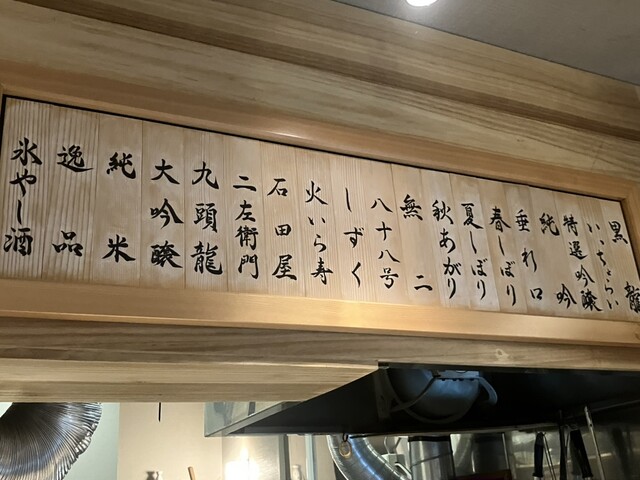 黒龍
いっちょらい
特選吟醸
純吟
垂れ口
春しぼり
夏しぼり
秋あがり
無二
八十八号
しずく
火いら寿
石田屋
二左衛門
九頭龍
大吟醸
純米
逸品
氷やし酒